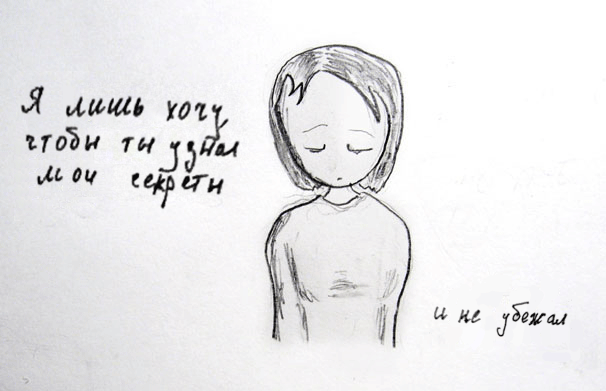 Я лишь хочу,
чтобы ты узнал
мои секреты
и не убежал